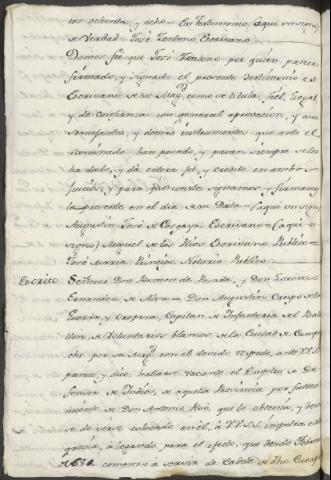 tos ochenta, y ocho = En testimonio, (aqui un signo)
de Verdad = José Zenteno Escrivano
Damos fee que José Zenteno por quien parece
firmado, y signado el presente testimonio es
Escrivano de su Mag.d como se titula, fiel, Legal
y de Confianza con general aprovacion, y a sus
semejantes, y demás instrumentos que ante el
nominado han pasado, y pasan siempre se les
ha dado, y dá entera fé, y credito en ambos
Juicios, y para que conste signamos y firmamos
la presente en el dia de su Data = (aqui un signo)
Augustin José de = Escrivano = (aqui un
signo) Miguel de los Rios Escrivano Publico =
José Maria Notario Publico
Escrito
Señores Don Ramon de Posada, y Don Lorenzo
Hernandez de Alva = Don Augustin Crespo de la
y Oropeza, Capitan de Infanteria del Bata
llon de Voluntarios blancos de la Ciudad de Campe
che por su Mag.d con el devido respecto, ante VV.SS.
parece, y dice, hallarse vacante el Empleo de De
fensor de Indios, de aquella Provincia por falleci
miento de Don Antonio que lo obtenia, y deseo
so de verse colocado en él, á VV.SS. impetra esta
gracia, alegando, para el efecto, que desde Febrero
comenzó á servir de Cadete de dho Cuerpo